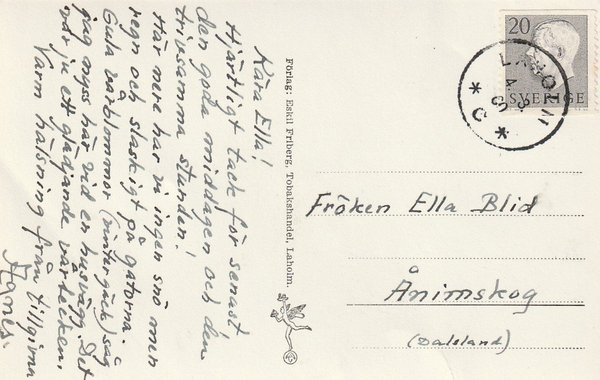 Kära Ella!
Hjärtligt tack för senast,
den goda middagen och den
trivsamma stunden!
Här nere har vi ingen snö men
regn och slaskigt på gatorna.
Gula vårblommor (vintergäck) såg
jag nyss här vid en husvägg. Det
var ju ett glädjande vårtecken.
Varm hälsning från tillgivna
Agnes.
Förlag: Eskil Friberg, Tobakshandel, Laholm.
20
SVERIGE
LAHOLM
Fröken Ella Blid
Ånimskog
(Dalsland)